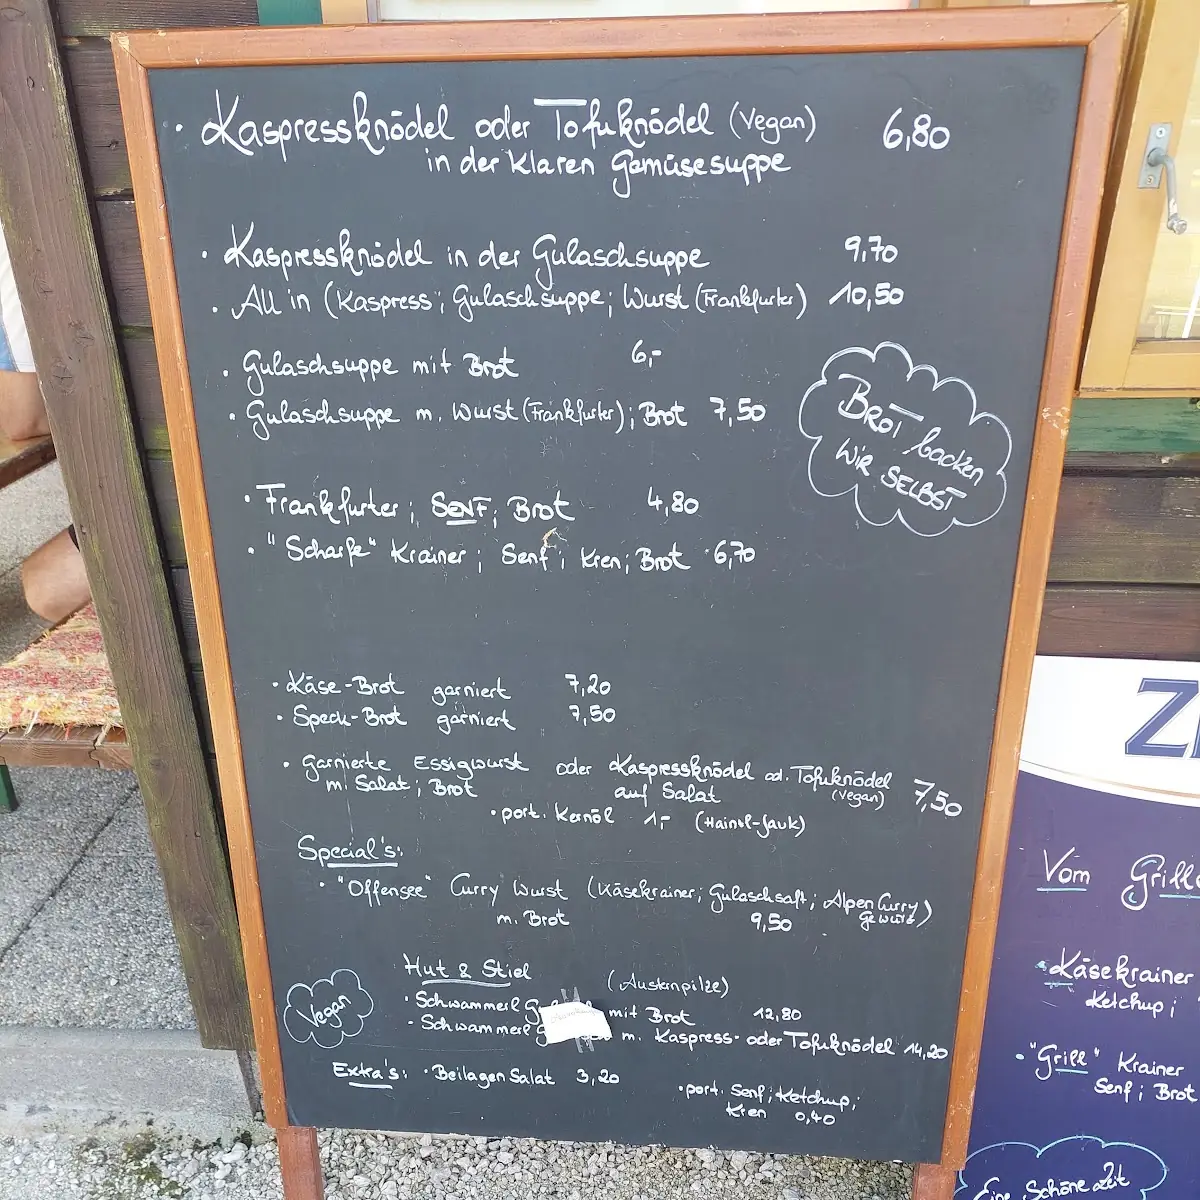 · Kaspressknödel oder Tofuknödel (Vegan) 6,80
in der Klaren Gemüsesuppe
· Kaspressknödel in der Gulaschsuppe 9,70
· All in (Kaspress; Gulaschsuppe; Wurst (Frankfurter) 10,50
· Gulaschsuppe mit Brot 6,-
· Gulaschsuppe m. Wurst (Frankfurter); Brot 7,50
Brot backen
wir SELBST
· Frankfurter; SENF; Brot 4,80
· "Scharfe" Krainer; Senf; Kren; Brot 6,70
· Käse-Brot garniert 7,20
· Speck-Brot garniert 7,50
· garnierte Essigwurst oder Kaspressknödel od. Tofuknödel 7,50
m. Salat; Brot auf Salat (Vegan)
· port. Kernöl 1,- (Hainol-Jauk)
Special's:
· "Offensee" Curry Wurst (Käsekrainer; Gulaschsaft; Alpen Curry
m. Brot 9,50 Gewürz)
Hut & Stiel (Austernpilze)
Vegan
· Schwammerl mit Brot 12,80
· Schwammerl m. Kaspress- oder Tofuknödel 14,20
Extra's: · Beilagen Salat 3,20
· port. Senf; Ketchup;
Kren 0,40
Vom Grill
· Käsekrainer
Ketchup;
· "Grill" Krainer
Senf; Brot
Eine Schöne Zeit